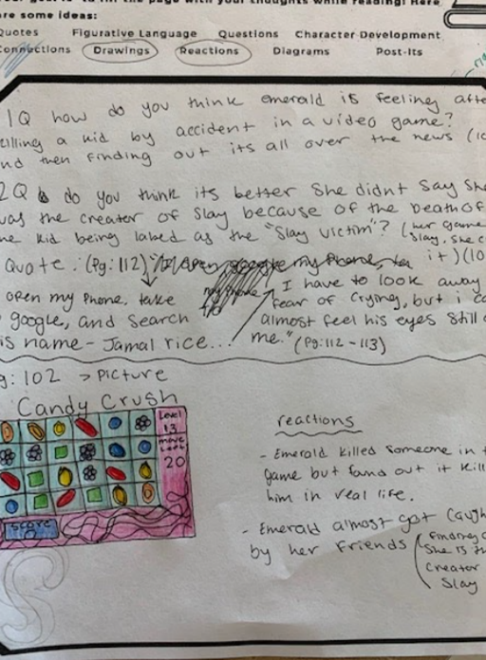 to fill the page with your thoughts while reading! Here
are some ideas:
Quotes Figurative Language Questions Character Development
Connections Drawings Reactions Diagrams Post-Its
1Q how do you think emerald is feeling afte
killing a kid by accident in a video game?
nd then finding out its all over the news
2Q do you think its better she didnt say she
was the creator of Slay because of the death of
he kid being labed as the "Slay victim"? (her game
Slay, she c
Quote: (Pg:112) it)
open my phone, take
google, and search
is name - Jamal rice...
I have to look away
fear of crying, but i ca
almost feel his eyes still
me." (Pg:112-113)
g:102 > picture
Candy Crush
Level
13
moves
Left
20
Score
reactions
- Emerald killed someone in
game but found out it kill
him in real life.
- Emerald almost got caugh
by her friends (finding
she is th
creator
Slay